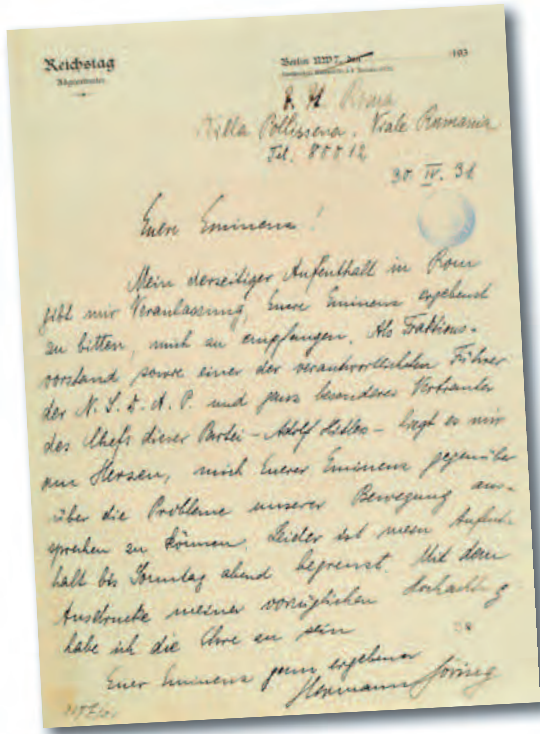 Reichstag
Abgeordneter
Berlin NW 7, den 193
z. Zt. Roma
Villa Pollissena. Viale Rumania
Tel. 80012
30 IV. 31
Euere Eminenz!
Mein derzeitiger Aufenthalt in Rom
gibt mir Veranlassung, Euere Eminenz ergebenst
zu bitten, mich zu empfangen. Als Fraktions-
vorstand sowie einer der verantwortlichsten Führer
der N. S. D. A. P. und ganz besonderes Vertrauter
des Chefs dieser Partei - Adolf Hitler - liegt es mir
am Herzen, mich Euerer Eminenz gegenüber
über die Probleme unserer Bewegung aus-
sprechen zu können. Leider ist mein Aufent-
halt bis Sonntag abend begrenzt. Mit dem
Ausdrucke meiner vorzüglichen Hochachtg
habe ich die Ehre zu sein
Euer Eminenz ganz ergebener
Hermann Göring